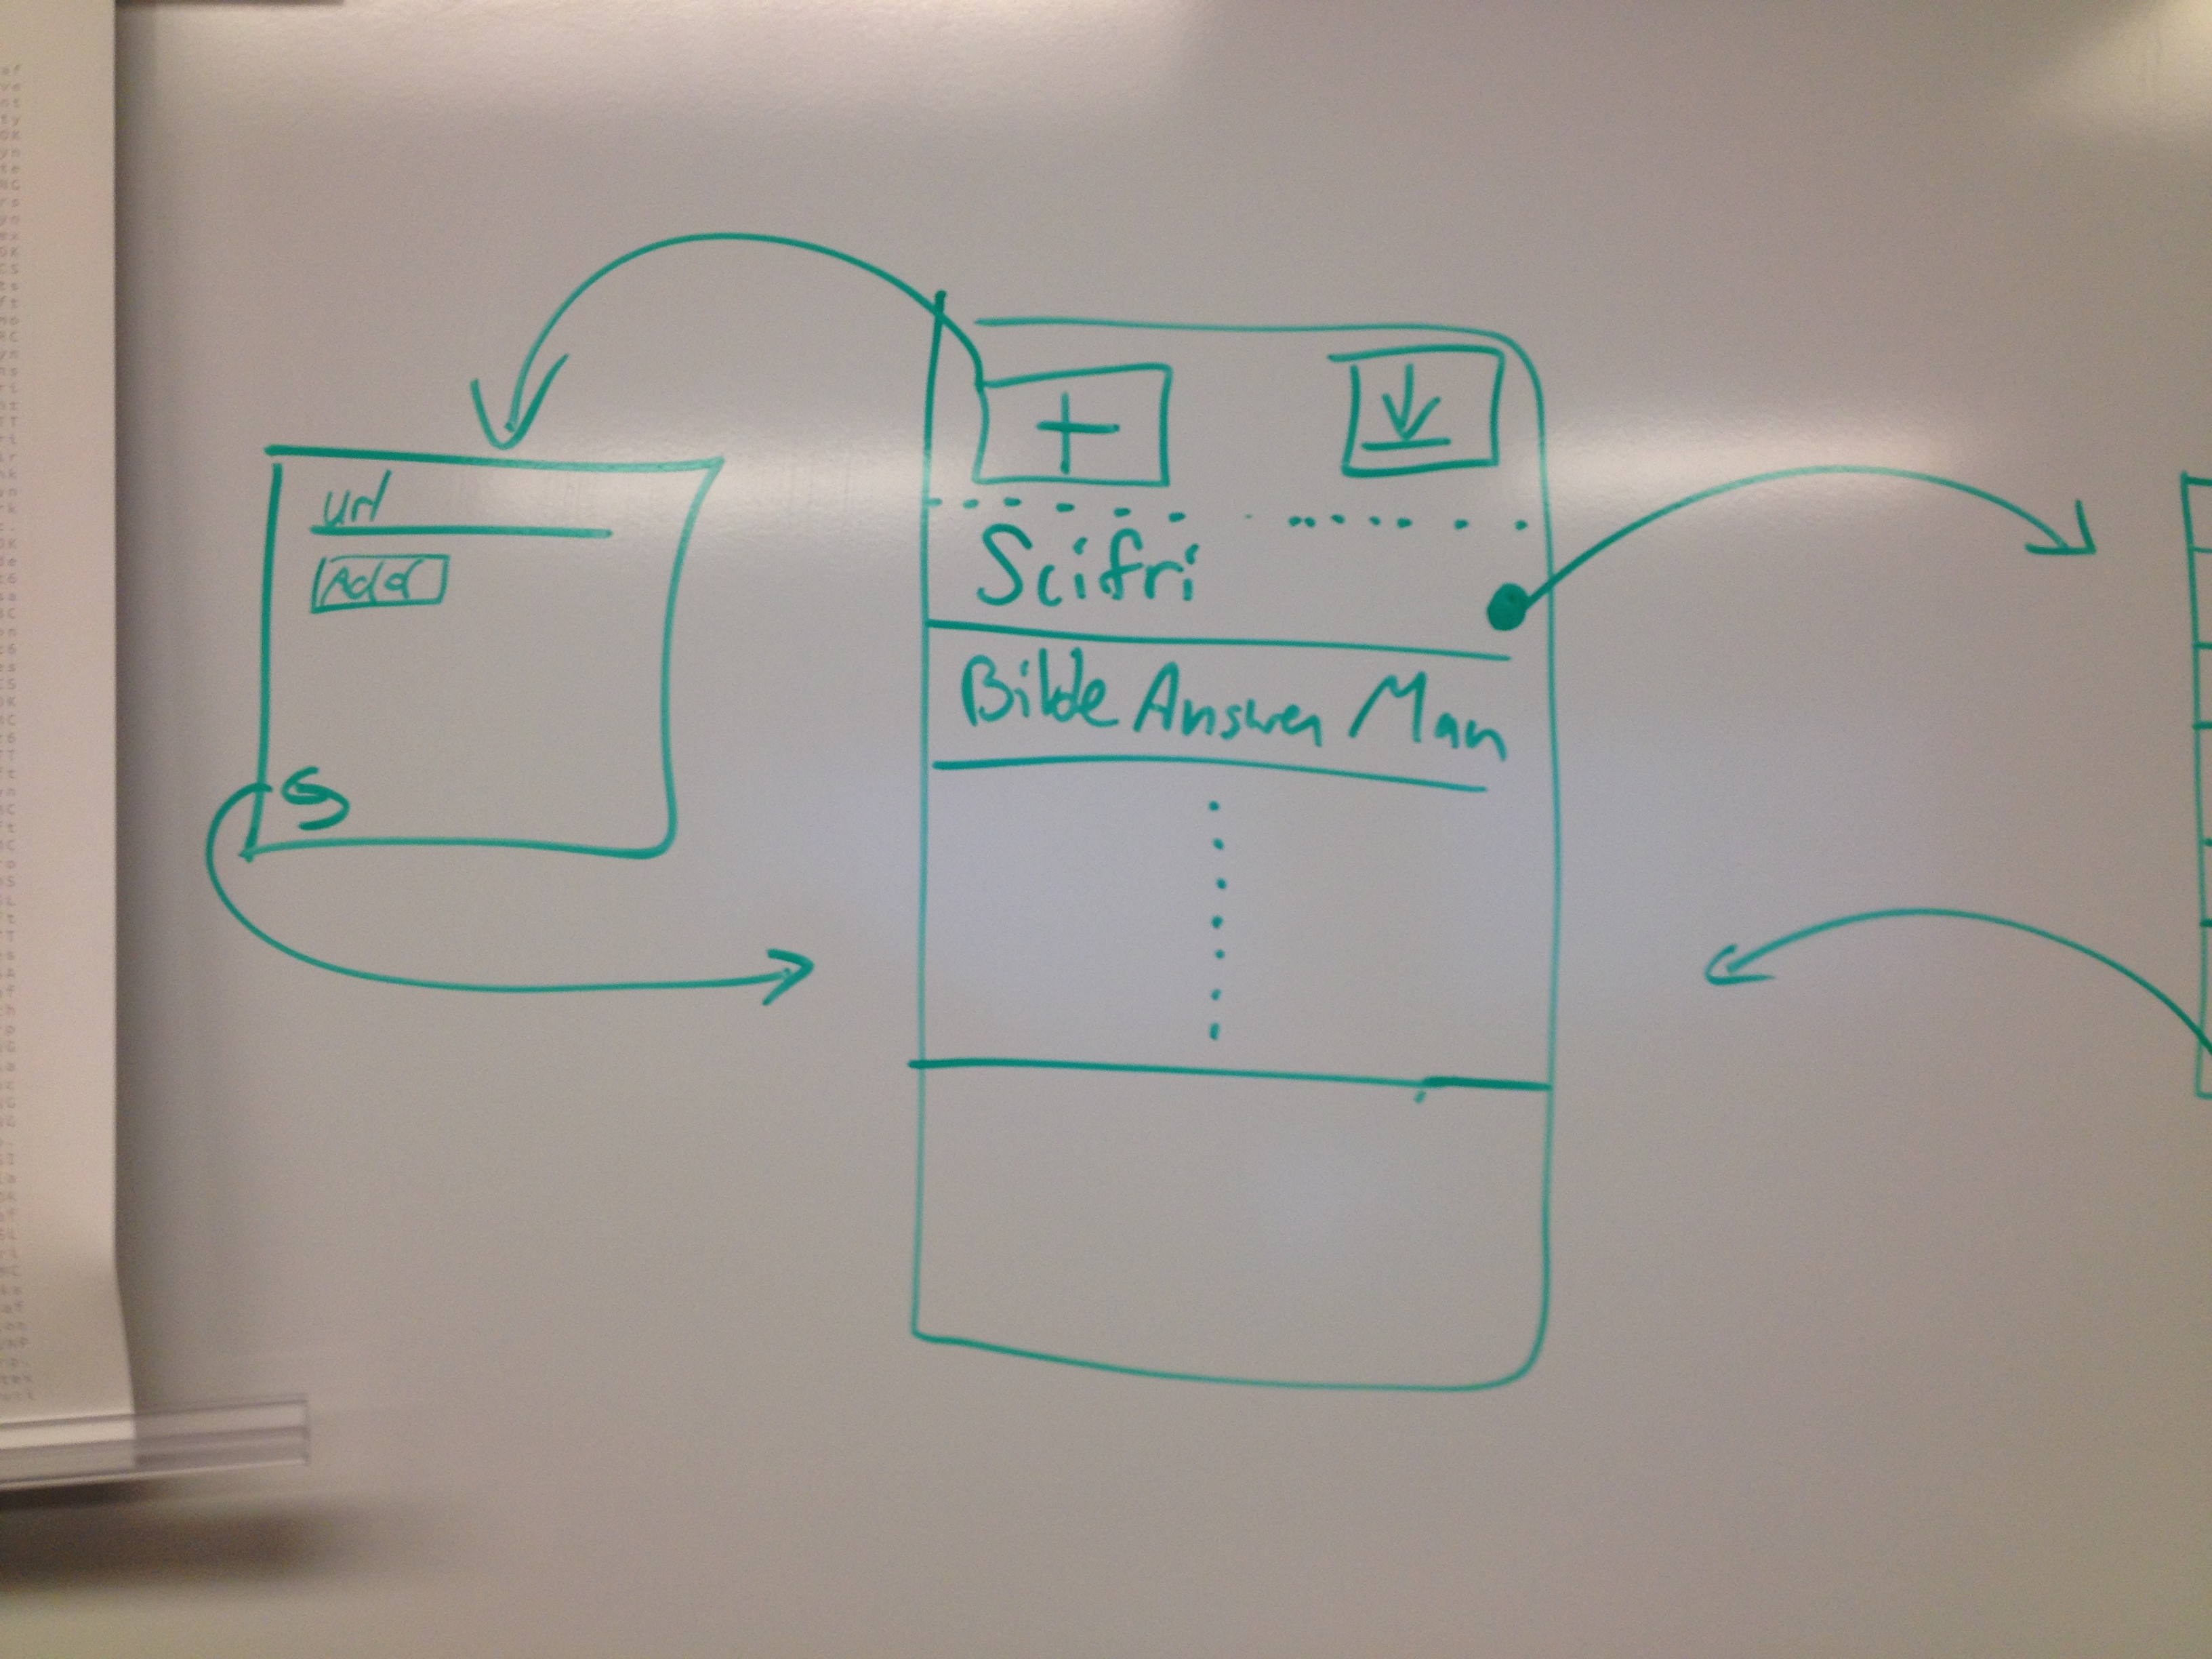 url
Add
+
Scifri
Bible Answer Man